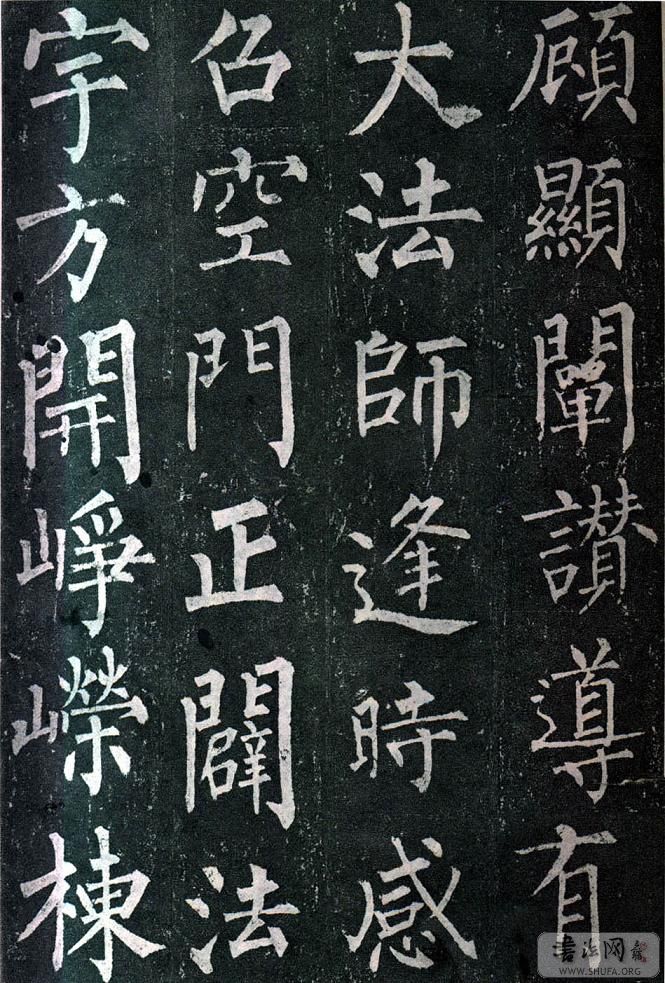 顧顯闡讃導有
大法師逢時感
召空門正闢法
宇方開崢嶸棟
書法网
WWW.SHUFA.ORG